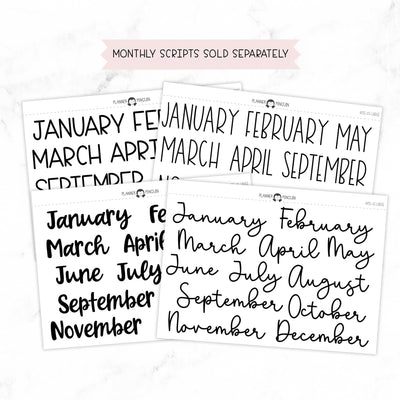 MONTHLY SCRIPTS SOLD SEPARATELY
PLANNER PENGUIN
JANUARY FE
MARCH APRI
SEPTEMBER
PLANNER PENGUIN
JANUARY FEBRUARY MAY
MARCH APRIL SEPTEMBER
PLANNER PENGUIN
January Fe
March April
June July
September
November
PLANNER PENGUIN
January February
March April May
June July August
September October
November December